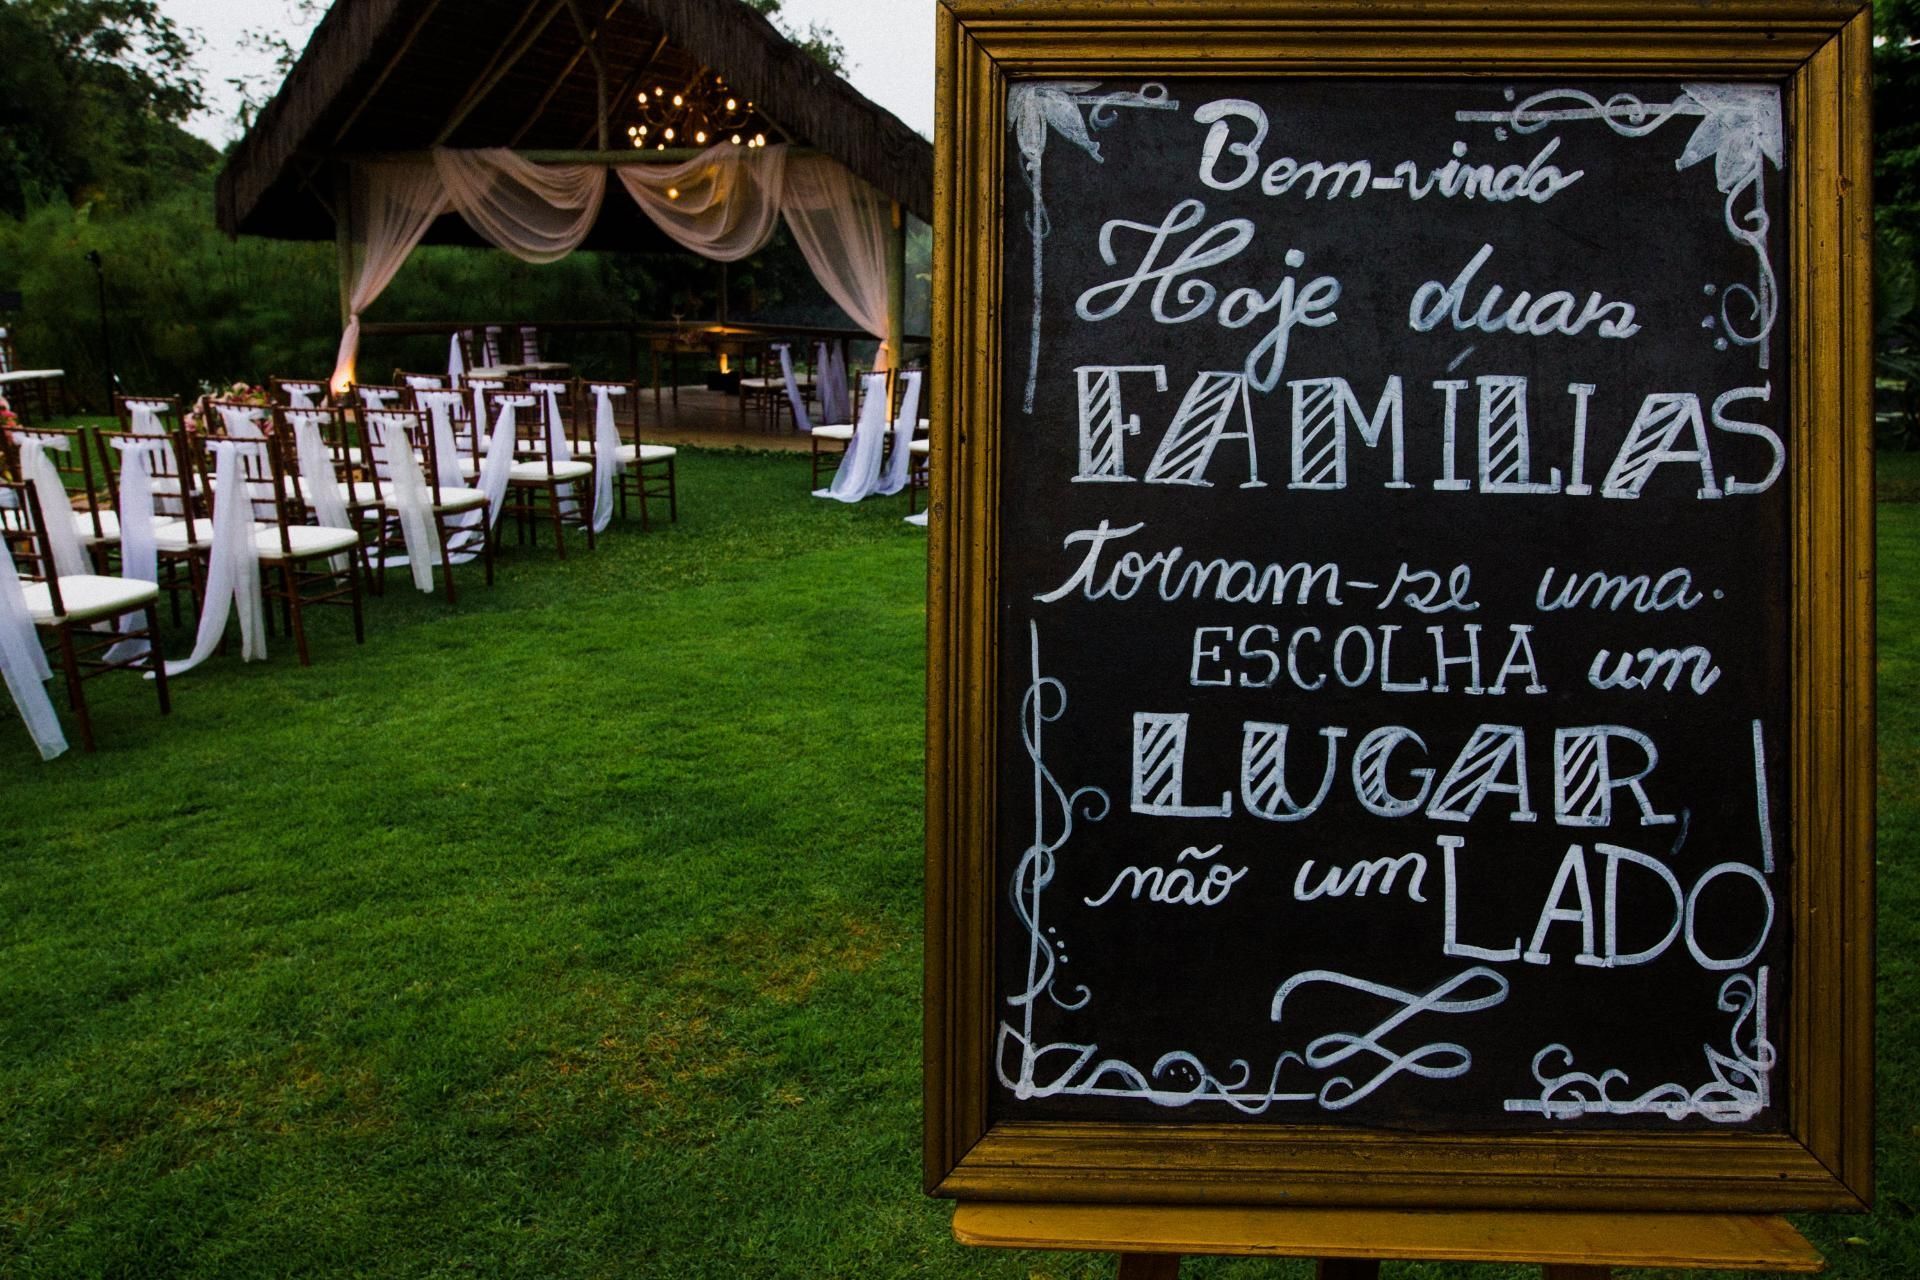 Bem-vindo
Hoje duas
FAMÍLIAS
tornam-se uma.
ESCOLHA um
LUGAR,
não um LADO